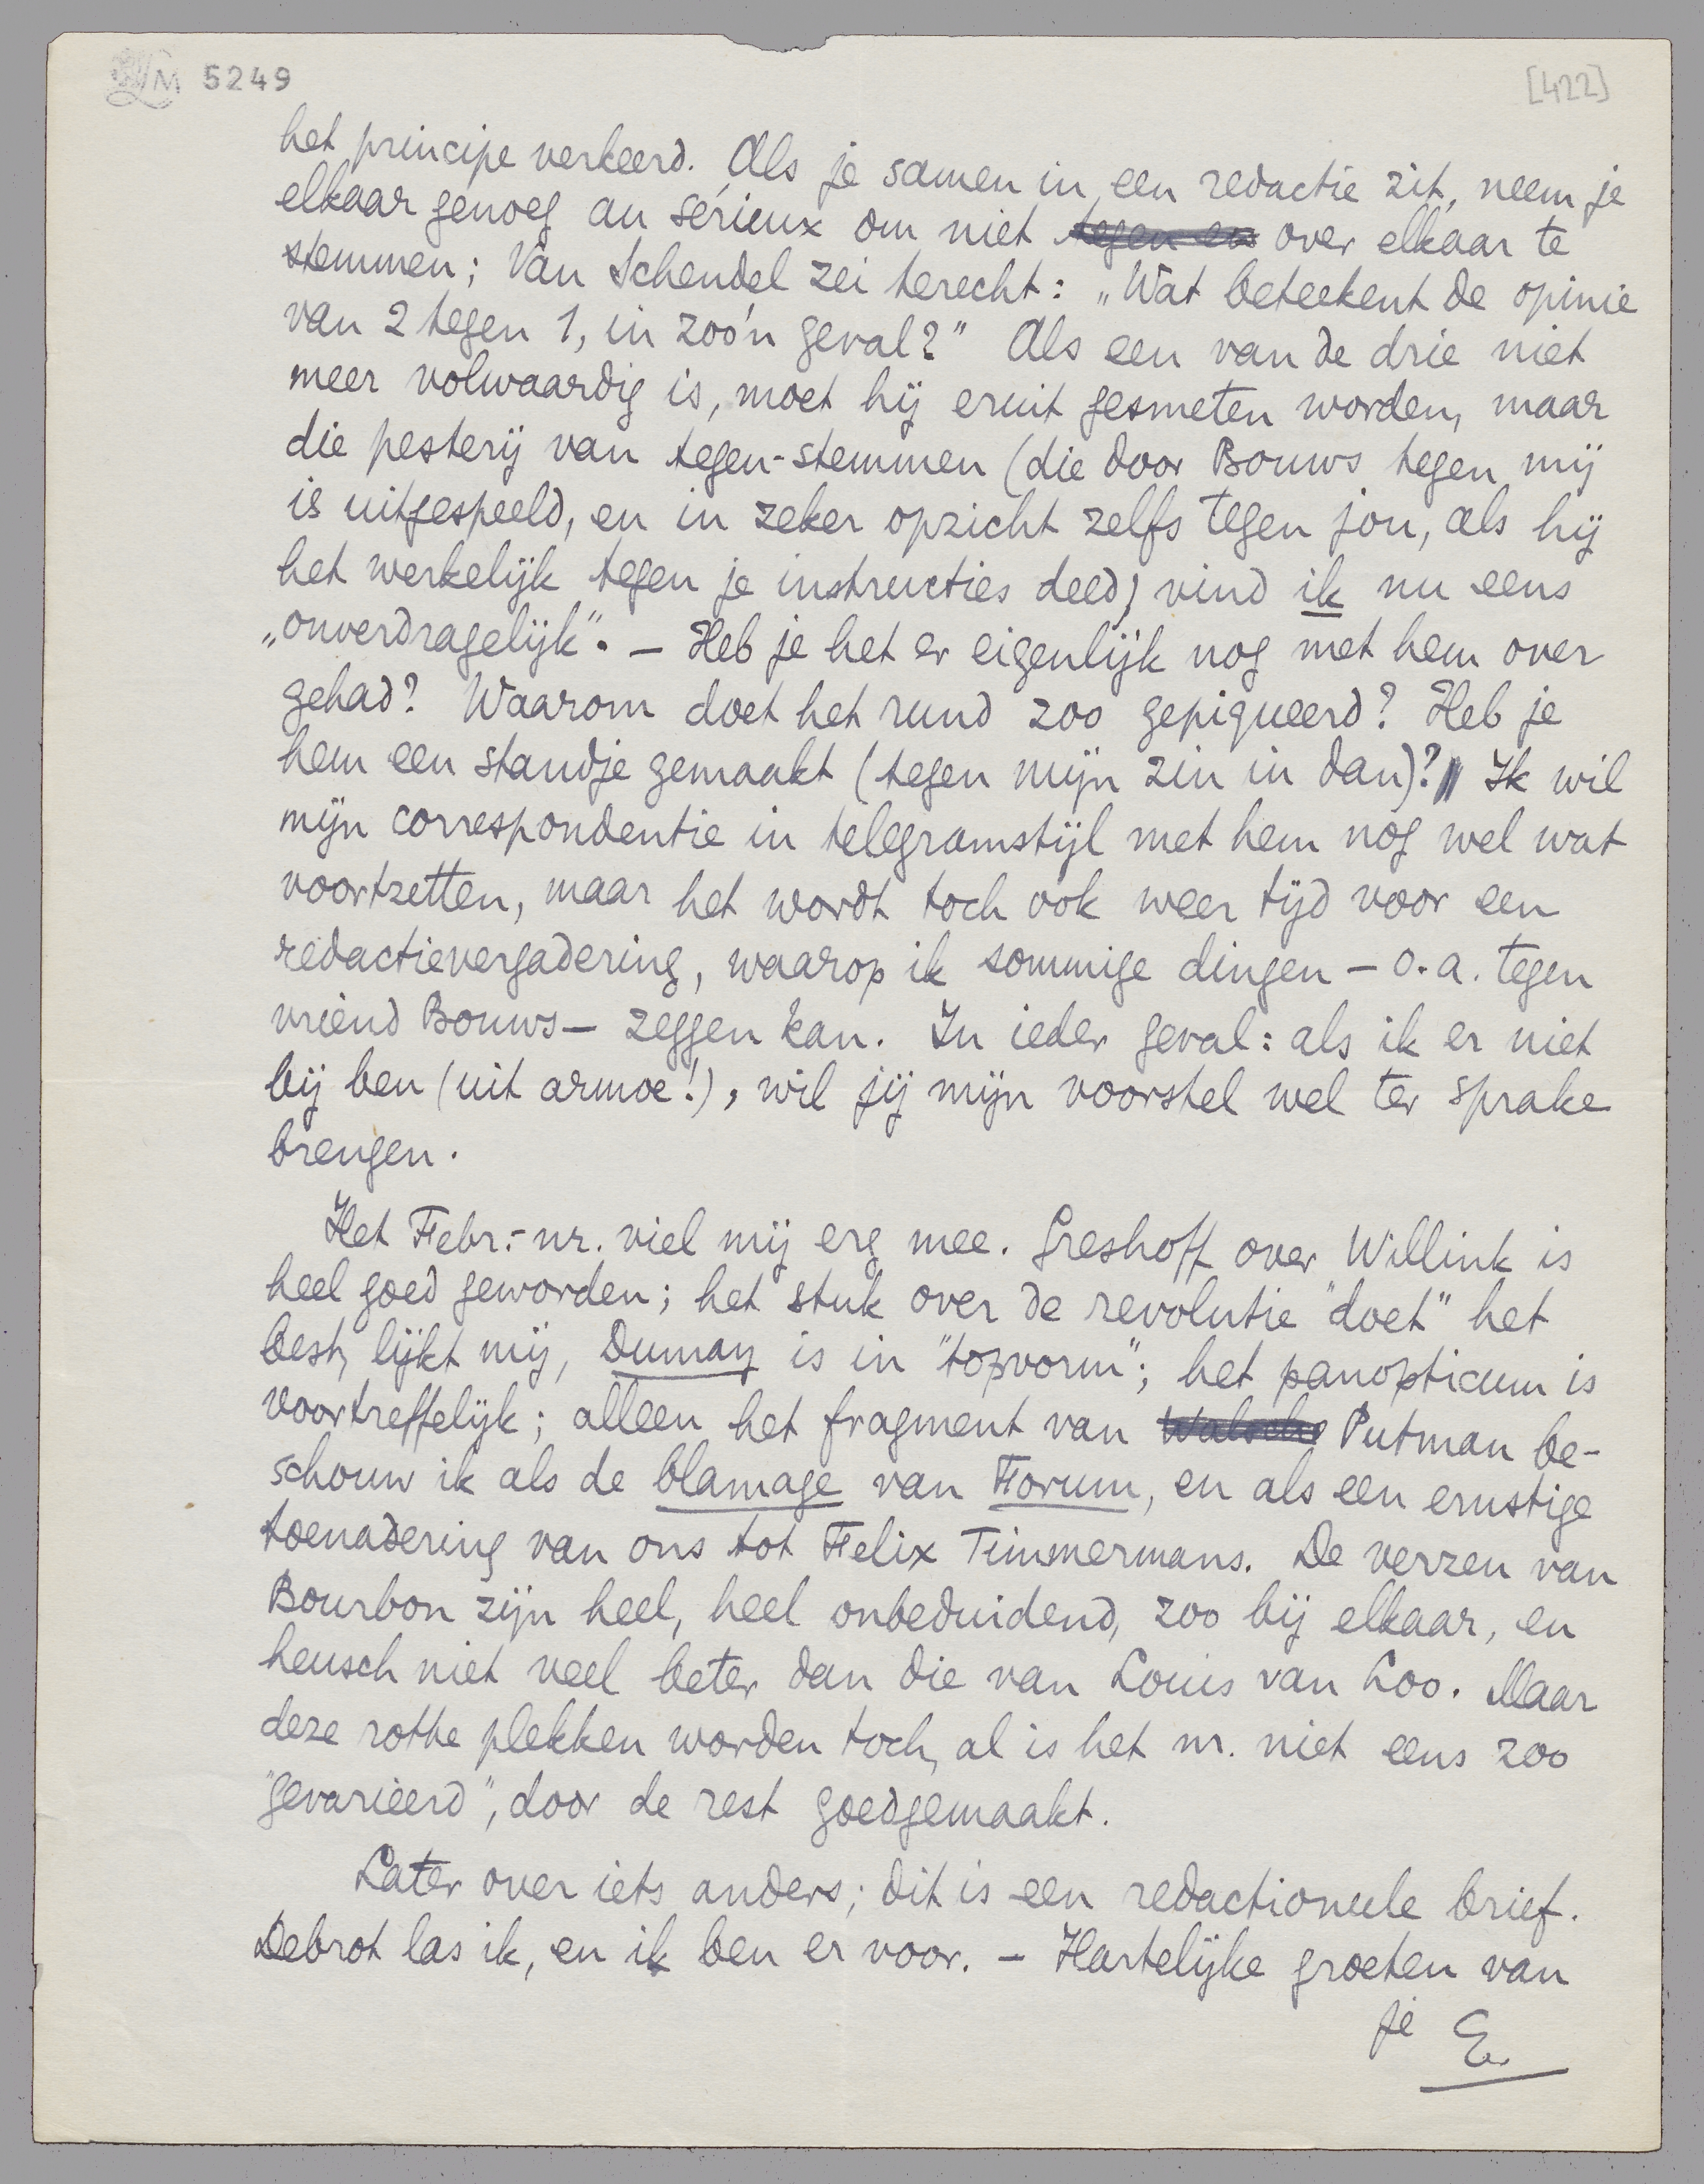 LM 5249
[422]
het principe verkeerd. Als je samen in een redactie zit, neem je
elkaar genoeg au sérieux om niet tegen en over elkaar te
stemmen; Van Schendel zei terecht: „Wat beteekent de opinie
van 2 tegen 1, in zoo'n geval?" Als een van de drie niet
meer volwaardig is, moet hij eruit gesmeten worden, maar
die pesterij van tegen-stemmen (die door Bouws tegen mij
is uitgespeeld, en in zeker opzicht zelfs tegen jou, als hij
het werkelijk tegen je instructies deed) vind ik nu eens
„onverdragelijk". — Heb je het er eigenlijk nog met hem over
gehad? Waarom doet het rund zoo gepiqueerd? Heb je
hem een standje gemaakt (tegen mijn zin in dan)? Ik wil
mijn correspondentie in telegramstijl met hem nog wel wat
voortzetten, maar het wordt toch ook weer tijd voor een
redactievergadering, waarop ik sommige dingen — o.a. tegen
vriend Bouws — zeggen kan. In ieder geval: als ik er niet
bij ben (uit armoe!), wil jij mijn voorstel wel ter sprake
brengen.
Het Febr.-nr. viel mij erg mee. Greshoff over Willink is
heel goed geworden; het stuk over de revolutie "doet" het
best, lijkt mij, Dumay is in "topvorm"; het panopticum is
voortreffelijk; alleen het fragment van Walschs Putman be-
schouw ik als de blamage van Forum, en als een ernstige
toenadering van ons tot Felix Timmermans. De verzen van
Bourbon zijn heel, heel onbeduidend, zoo bij elkaar, en
heusch niet veel beter dan die van Louis van Loo. Maar
deze rotte plekken worden toch, al is het nr. niet eens zoo
"gevarieerd", door de rest goedgemaakt.
Later over iets anders; dit is een redactioneele brief.
Debrot las ik, en ik ben er voor. — Hartelijke groeten van
je E.